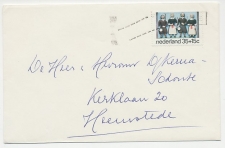 nederland 35+15c
De Heer & Mevrouw D/Kema-
Schoute
Kerklaan 20
Heemstede